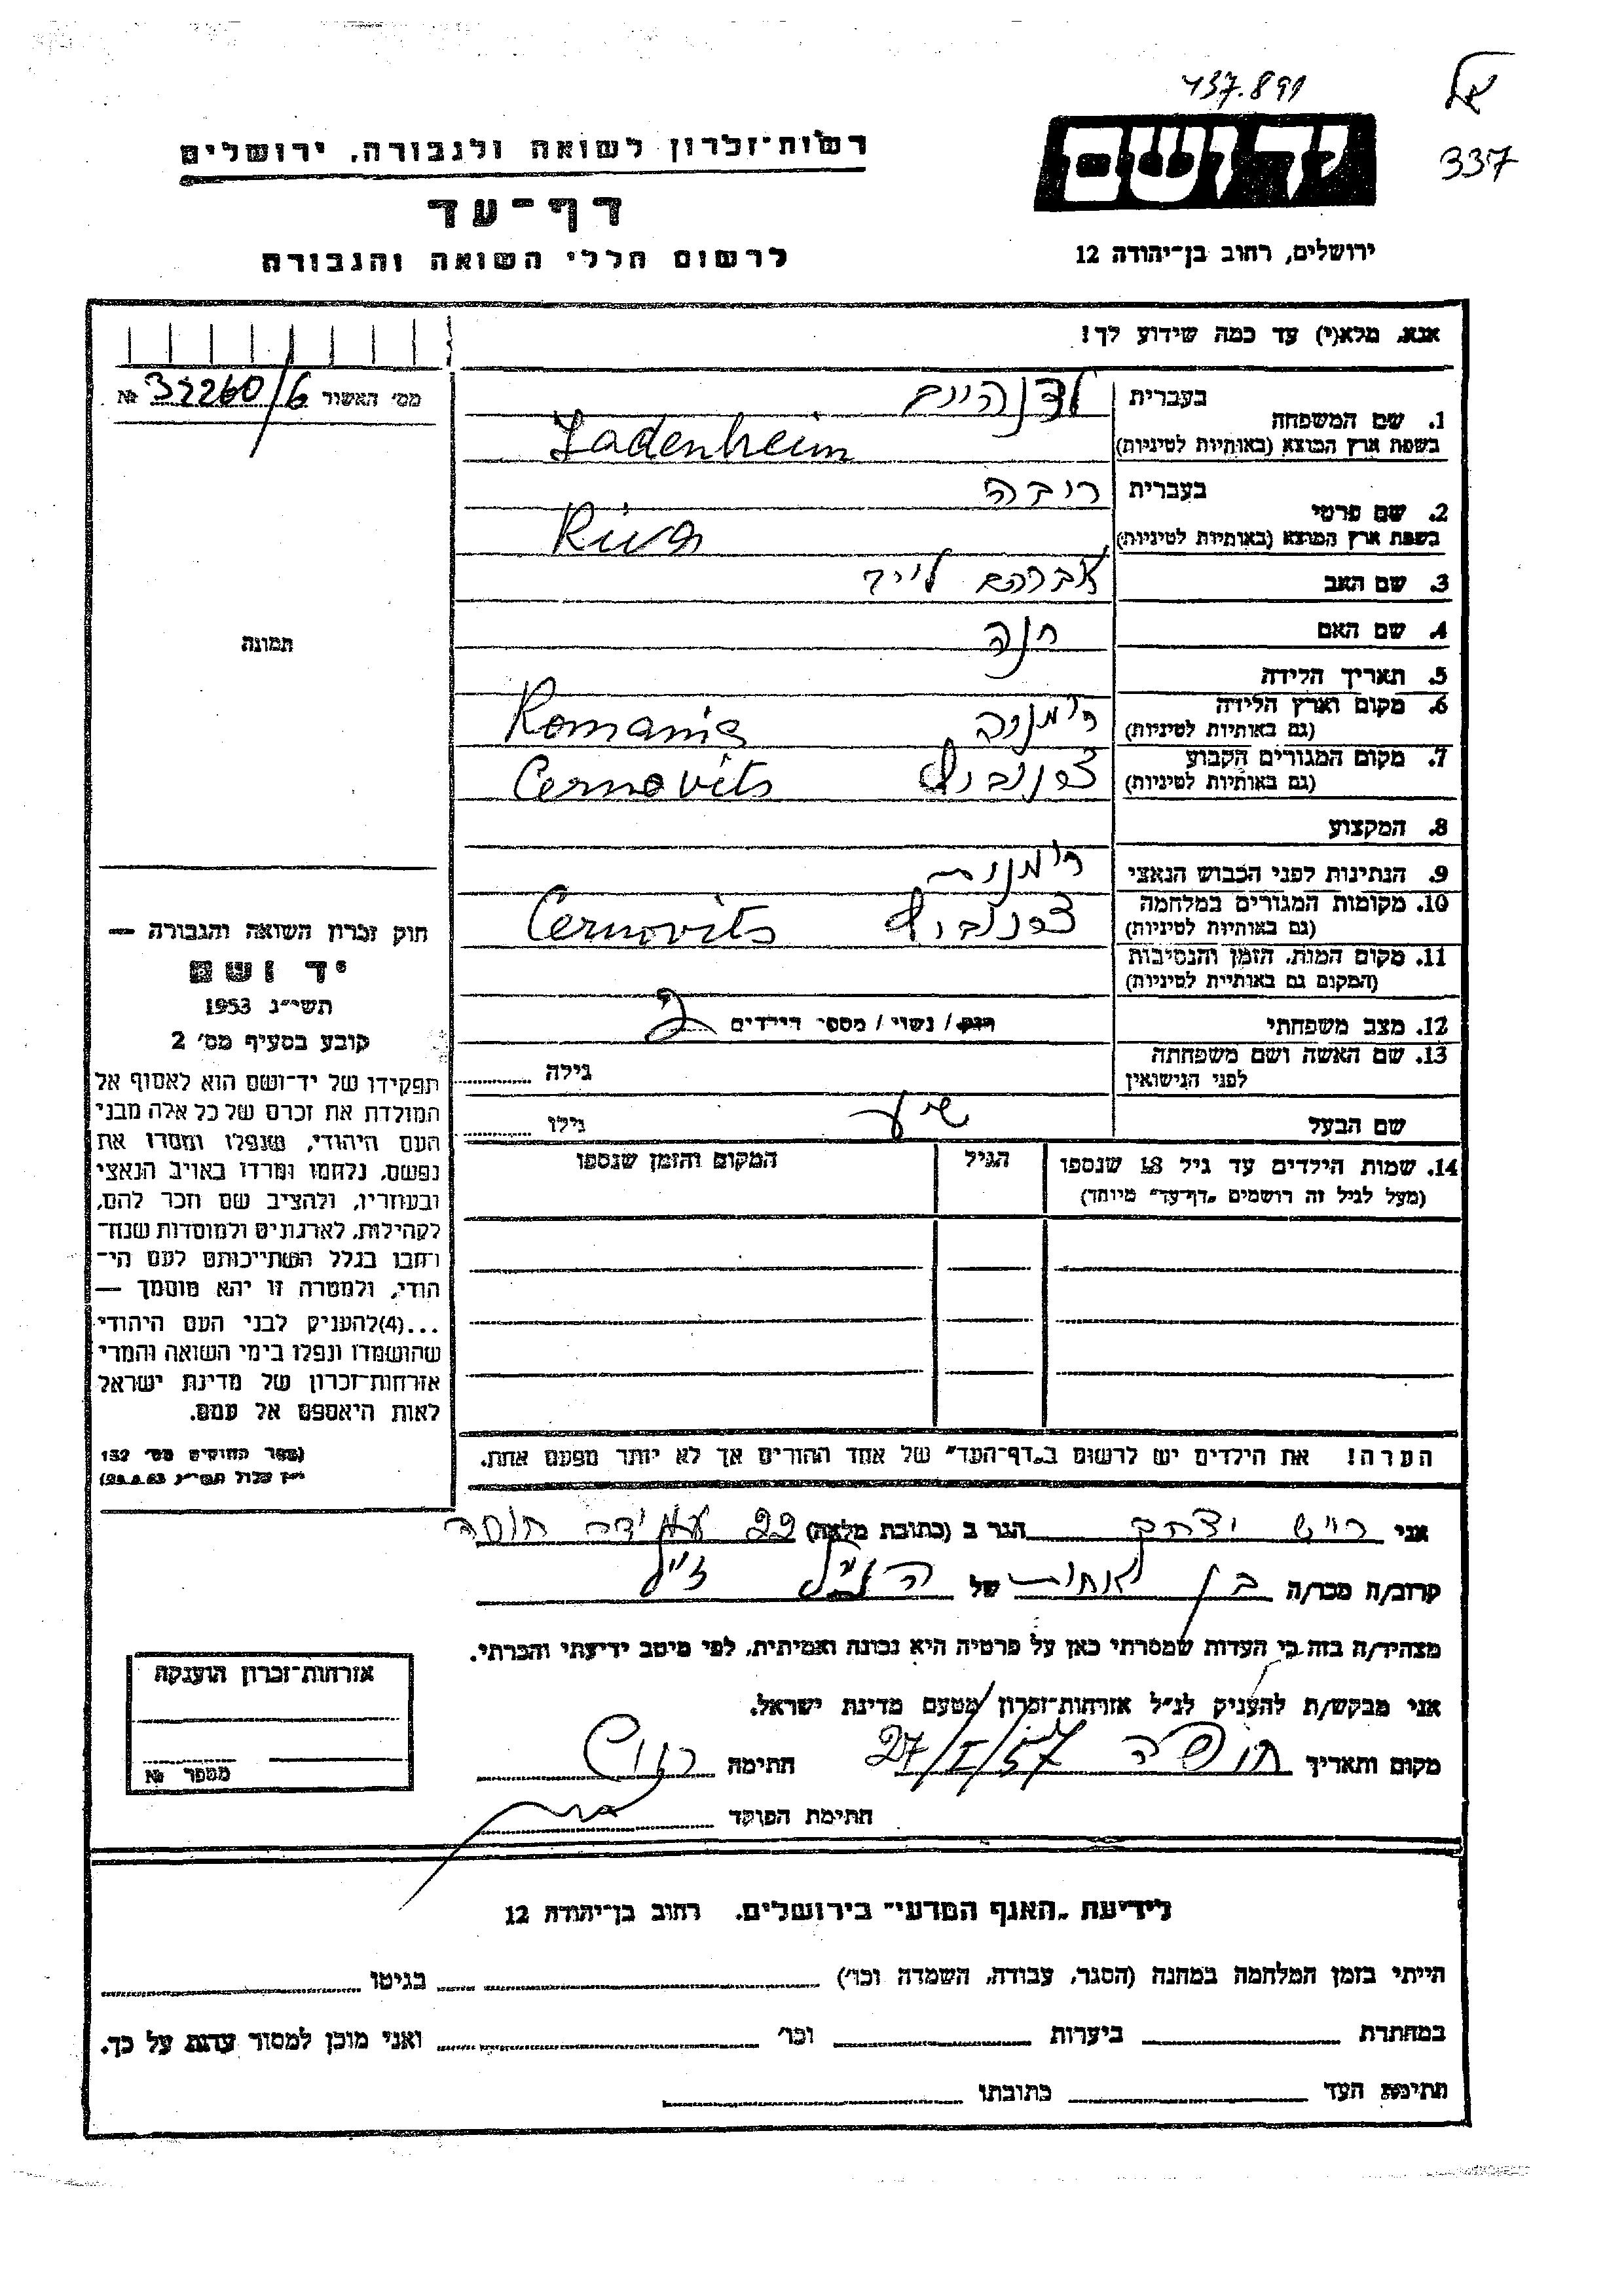 437.891
אל
337
יד ושם
רשות־זכרון לשואה ולגבורה, ירושלים
דף־עד
לרשום חללי השואה והגבורה
ירושלים, רחוב בן־יהודה 12
אנא, מלא(י) עד כמה שידוע לך!
מס׳ האשור 32260/6 №
1. שם המשפחה בעברית לדנהיים
בשפת ארץ המוצא (באותיות לטיניות) Ladenheim
2. שם פרטי בעברית ריבה
בשפת ארץ המוצא (באותיות לטיניות) Riva
3. שם האב אברהם לייב
4. שם האם חנה
5. תאריך הלידה
6. מקום וארץ הלידה רומניה Romania
(גם באותיות לטיניות)
7. מקום המגורים הקבוע צרנוביץ Cernovits
(גם באותיות לטיניות)
8. המקצוע
9. הנתינות לפני הכבוש הנאצי רומנית
10. מקומות המגורים במלחמה צרנוביץ Cernovits
(גם באותיות לטיניות)
11. מקום המות, הזמן והנסיבות
(המקום גם באותיות לטיניות)
12. מצב משפחתי רווק / נשוי / מספר הילדים 2
13. שם האשה ושם משפחתה גילה
לפני הנישואין
שם הבעל שיע גילו
14. שמות הילדים עד גיל 18 שנספו הגיל המקום והזמן שנספו
(מעל לגיל זה רושמים „דף־עד״ מיוחד)
הערה! את הילדים יש לרשום ב„דף־העד״ של אחד ההורים אך לא יותר מפעם אחת.
תמונה
חוק זכרון השואה והגבורה —
יד ושם
תשי״ג 1953
קובע בסעיף מס׳ 2
תפקידו של יד־ושם הוא לאסוף אל
המולדת את זכרם של כל אלה מבני
העם היהודי, שנפלו ומסרו את
נפשם, נלחמו ומרדו באויב הנאצי
ובעוזריו, ולהציב שם וזכר להם,
לקהילות, לארגונים ולמוסדות שנח־
רבו בגלל השתייכותם לעם הי־
הודי, ולמטרה זו יהא מוסמך —
...(4)להעניק לבני העם היהודי
שהושמדו ונפלו בימי השואה והמרי
אזרחות־זכרון של מדינת ישראל
לאות היאספם אל עמם.
(ספר החוקים מס׳ 132
י״ז אלול תשי״ג 28.8.53)
אני רייש יצחק הגר ב (כתובת מלאה) 22 חיפה
קרוב/ה מכר/ה בן אחות של הנ״ל ז״ל
מצהיר/ה בזה כי העדות שמסרתי כאן על פרטיה היא נכונה ואמיתית, לפי מיטב ידיעתי והכרתי.
אני מבקש/ת להעניק לנ״ל אזרחות־זכרון מטעם מדינת ישראל.
מקום ותאריך חיפה 27/I/57 חתימה
חתימת הפוקד
אזרחות־זכרון הוענקה
מספר №
לידיעת „האגף המדעי״ בירושלים, רחוב בן־יהודה 12
הייתי בזמן המלחמה במחנה (הסגר, עבודה, השמדה וכו׳) בגיטו
במחתרת ביערות וכו׳ ואני מוכן למסור עדות על כך.
חתימת העד כתובתו